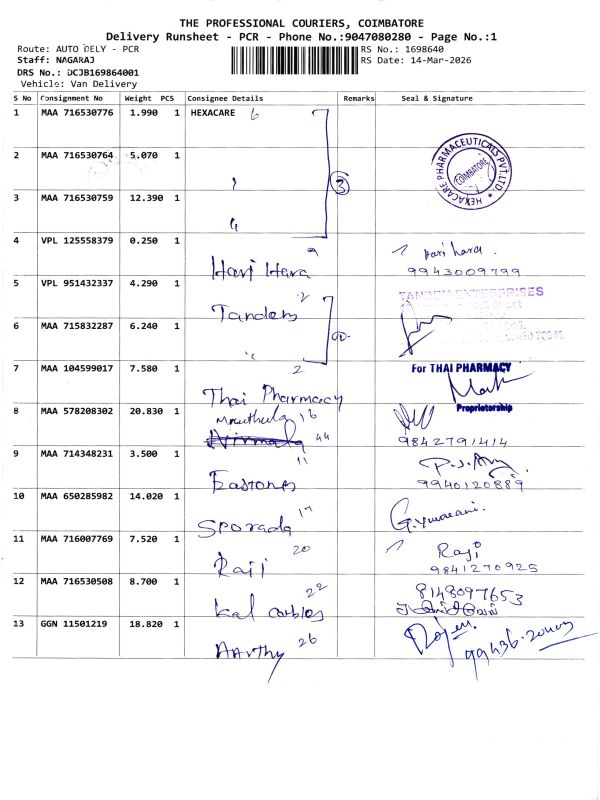 THE PROFESSIONAL COURIERS, COIMBATORE
Delivery Runsheet - PCR - Phone No.:9047080280 - Page No.:1
Route: AUTO DELY - PCR RS No.: 1698640
Staff: NAGARAJ RS Date: 14-Mar-2026
DRS No.: DCJB169864001
Vehicle: Van Delivery
S No Consignment No Weight PCS Consignee Details Remarks Seal & Signature
1 MAA 716530776 1.990 1 HEXACARE 6
2 MAA 716530764 5.070 1
3
HEXACARE PHARMACEUTICALS PVT.LTD. COIMBATORE
3 MAA 716530759 12.390 1
4 VPL 125558379 0.250 1 9
Hari Hara Hari hara
9943009799
5 VPL 951432337 4.290 1
Tandem TANDEM ENTERPRISES
6 MAA 715832287 6.240 1
7 MAA 104599017 7.580 1 2 For THAI PHARMACY
Thai Pharmacy Proprietorship
8 MAA 578208302 20.830 1 16
Nirmala 44 9842791414
9 MAA 714348231 3.500 1 11
Eastones 9940120889
10 MAA 650285982 14.020 1 17
Sporada
11 MAA 716007769 7.520 1 20
Raji Raji
9841270925
12 MAA 716530508 8.700 1 22 8148097653
Kal
13 GGN 11501219 18.820 1 26
Aarthy